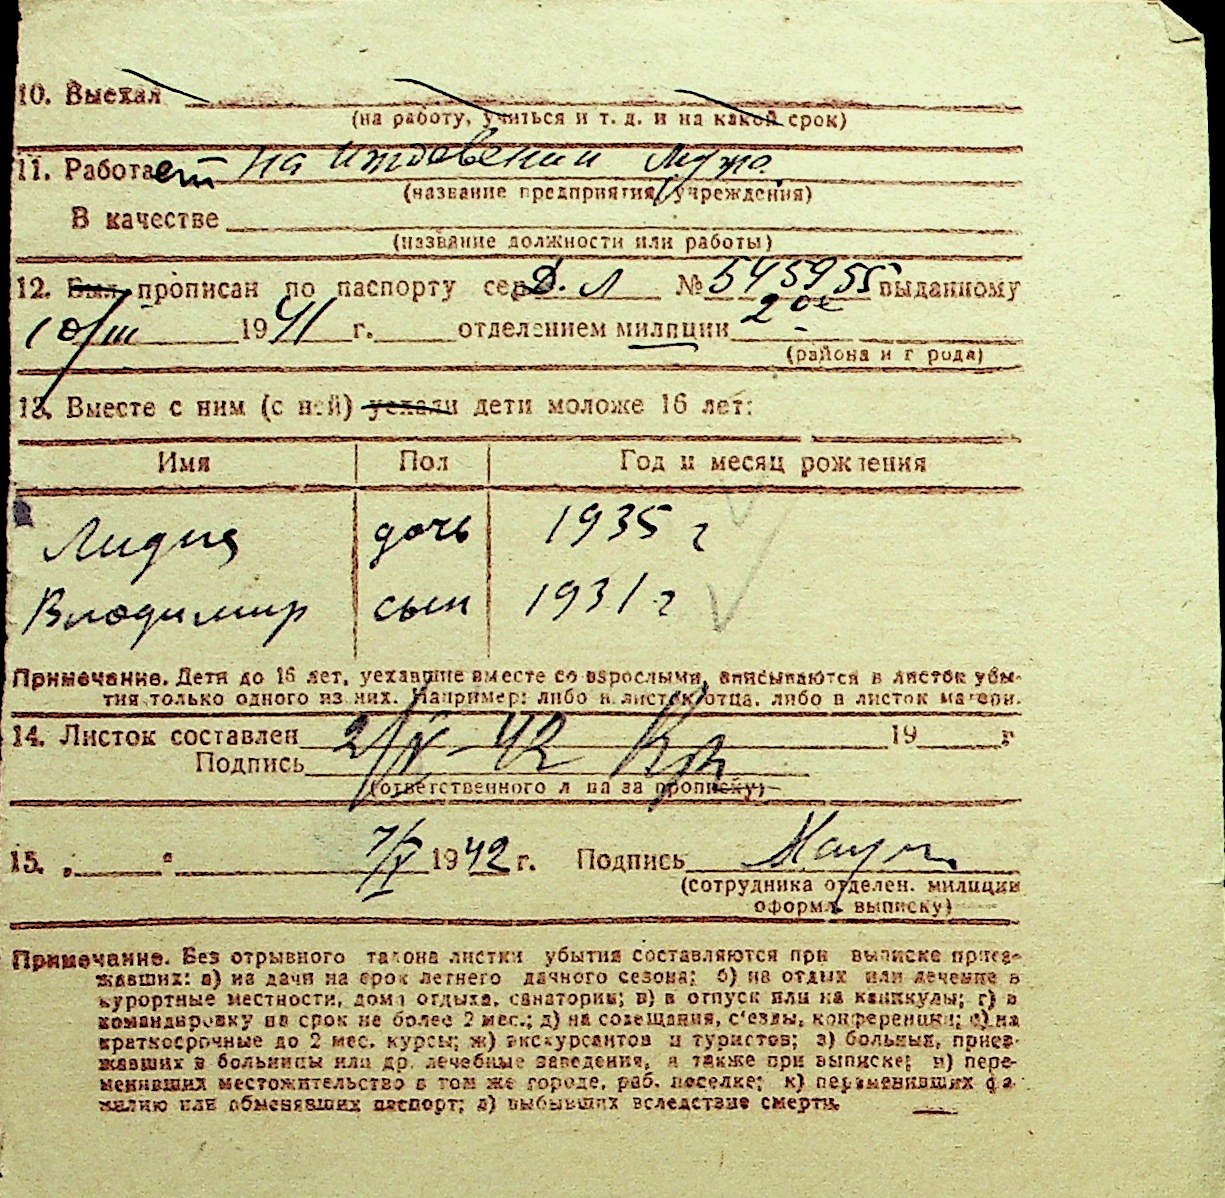 10. Выехал
(на работу, учиться и т. д. и на какой срок)
11. Работает на иждевении мужа.
(название предприятия, учреждения)
В качестве
(название должности или работы)
12. Был прописан по паспорту сер. Д. Л № 545955 выданному
10/III 1941 г. отделением милиции 2ое
(района и города)
13. Вместе с ним (с ней) уехали дети моложе 16 лет:
Имя Пол Год и месяц рождения
Лидия дочь 1935 г
Владимир сын 1931 г
Примечание. Дети до 16 лет, уехавшие вместе со взрослыми, вписываются в листок убы-
тия только одного из них. Например: либо в листок отца, либо в листок матери.
14. Листок составлен 2/IV-42 19 г
Подпись
(ответственного лица за прописку)
15. „ “ 7/V 1942 г. Подпись
(сотрудника отделен. милиции
оформл. выписку)
Примечание. Без отрывного талона листки убытия составляются при выписке приез-
жавших: а) на дачи на срок летнего дачного сезона; б) на отдых или лечение в
курортные местности, дома отдыха, санатории; в) в отпуск или на каникулы; г) в
командировку на срок не более 2 мес.; д) на совещания, с'езды, конференции; е) на
краткосрочные до 2 мес. курсы; ж) экскурсантов и туристов; з) больных, приез-
жавших в больницы или др. лечебные заведения, а также при выписке; и) пере-
менивших местожительство в том же городе, раб. поселке; к) переменивших фа-
милию или обменявших паспорт; л) выбывших вследствие смерти.